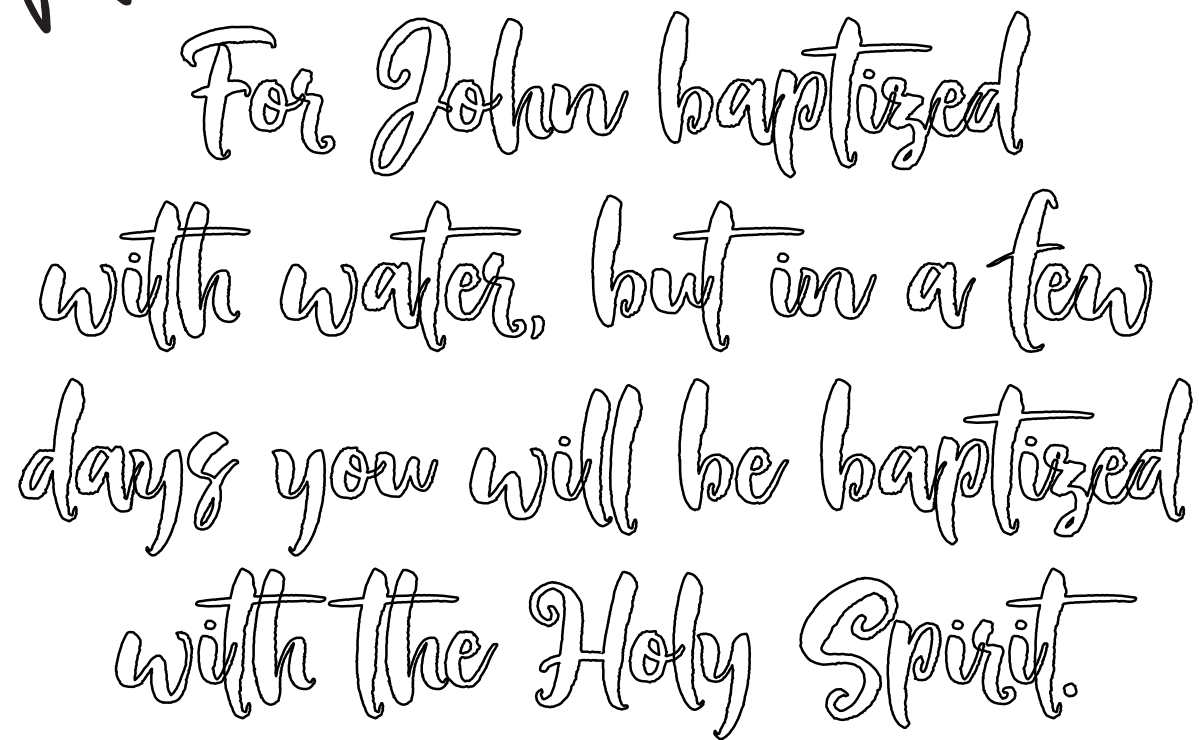 For John baptized
with water, but in a few
days you will be baptized
with the Holy Spirit.